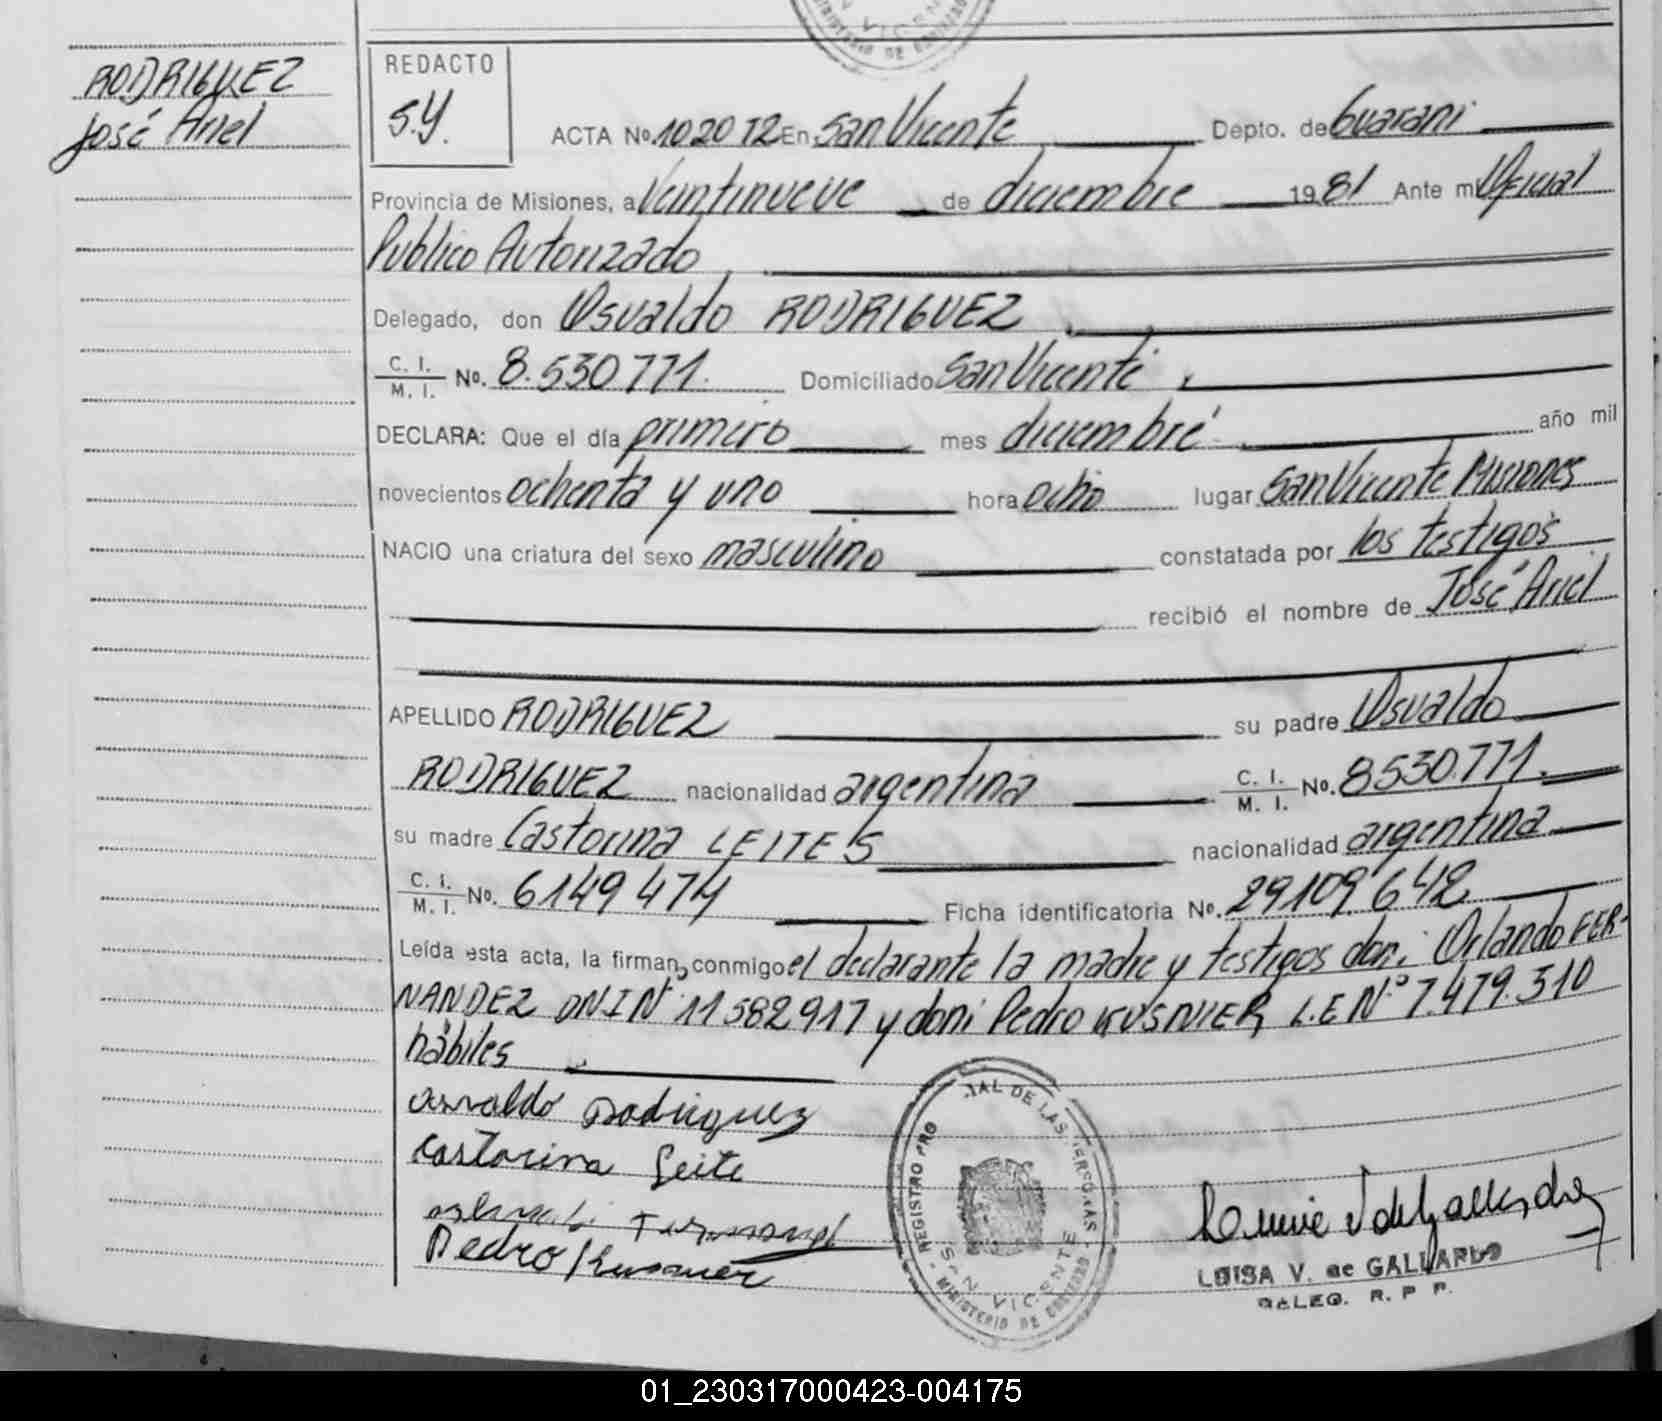 RODRIGUEZ
José Ariel
REDACTO
S.Y.
ACTA No. 1020 T2 En San Vicente Depto. de Guarani
Provincia de Misiones, a Veintinueve de diciembre 1981 Ante mi Oficial
Publico Autorizado
Delegado, don Osvaldo RODRIGUEZ
C. I. / M. I. No. 8.530771. Domiciliado San Vicente
DECLARA: Que el día primero mes diciembre año mil
novecientos ochenta y uno hora ocho lugar San Vicente Misiones
NACIO una criatura del sexo masculino constatada por los testigos
recibió el nombre de José Ariel
APELLIDO RODRIGUEZ su padre Osvaldo
RODRIGUEZ nacionalidad argentina C. I. / M. I. No. 8530.771.
su madre Castorina LEITES nacionalidad argentina
C. I. / M. I. No. 6149474 Ficha identificatoria No. 29109642
Leída esta acta, la firman, conmigo el declarante la madre y testigos don: Orlando FER-
NANDEZ DNI N° 11582917 y don: Pedro KUSNIER L.E N° 7.479.310
hábiles
Osvaldo Rodriguez
Castorina Leite
Pedro Kusnier
REGISTRO PRO IAL DE LAS PERSONAS
SAN VICENTE
MINISTERIO DE GOBIERNO
LUISA V. de GALLARDO
DELEG. R. P. P.
01_230317000423-004175